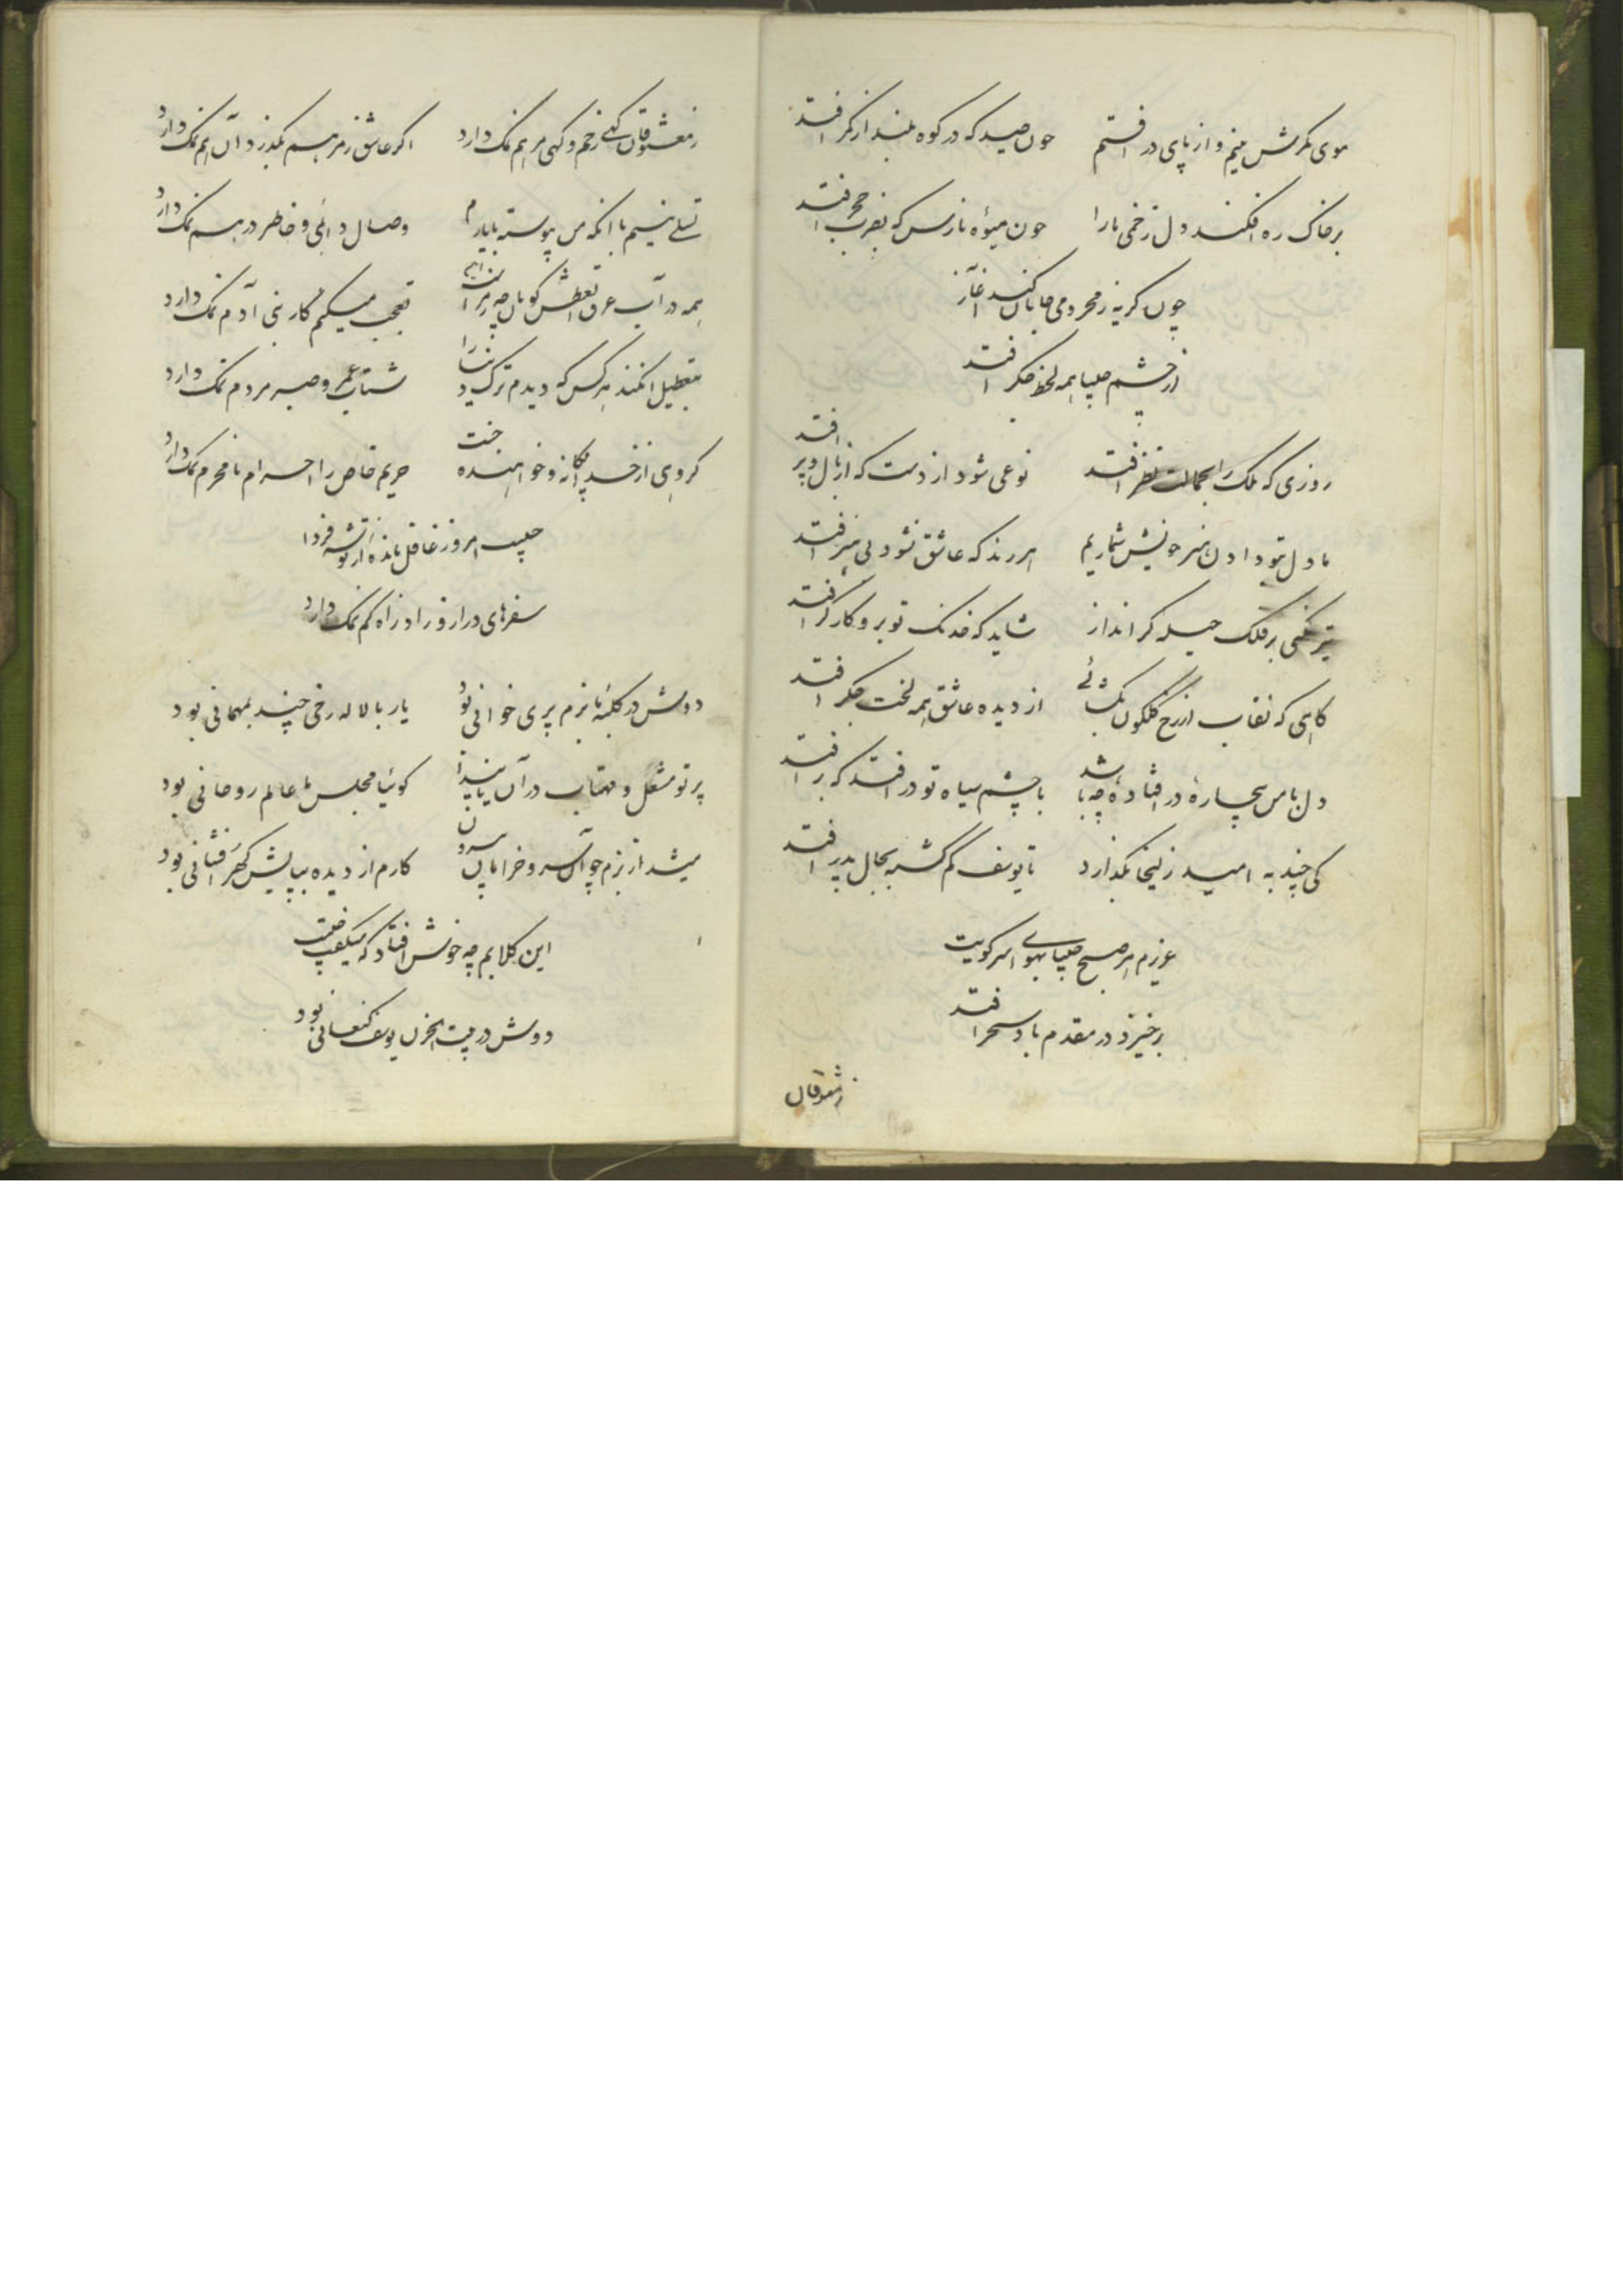 موی کمرش بینم و از پای در افتم چون صید که در کوه بلند از کمر افتد
بر خاک ره افکند دل زخمی ما را چون میوه نارس که بضرب حجر افتد
چون گریه ز محرومی جانان کند آغاز
از چشم چلپپا همه لخت جگر افتد
روزی که ملک را بجمالت نظر افتد نوعی شود از دست که از بال و پر افتد
ما دل بتو دادن هنر خویش شماریم هر رند که عاشق نشود بی هنر افتد
تیر بر فلک حیله گر انداز شاید که خدنگ تو برو کارگر افتد
گاهی که نقاب از رخ گلگون بگشائی از دیده عاشق همه لخت جگر افتد
دل با من بیچاره در افتاده چه باشد با چشم سیاه تو در افتد که بر افتد
کی چند به امید زلیخا بگذارد تا یوسف گم گشته بحال پدر افتد
عزم هر صبح چلپپا بهوای سر کویت
برخیزد و در مقدم باد سحر افتد
ز معشوقان
ز معشوقان گهی زخم و گهی مرهم نمک دارد اگر عاشق ز مرهم بگذرد آن هم نمک دارد
تسلی نیستم با آنکه من پیوسته با یارم وصال دائمی و خاطر درهم نمک دارد
همه در آب غرق تعطش گویان چه تعجب میکنم کار بنی آدم نمک دارد
بتعطیل هر کس که دیدم ترک دنیا را شتاب عمر و صبر مردم نمک دارد
گروهی از خدا بیگانه و خواهنده جنت حریم خاص را احرام نامحرم نمک دارد
چلیپ امروز غافل مانده از توشه فردا
سفرهای دراز و زاد راه کم نمک دارد
دوش در کلبه ما بزم پری خوانی بود یار با لاله رخی چند بمهمانی بود
پرتو مشعل و مهتاب در آن پیدا گوئیا مجلس ما عالم روحانی بود
میشد از بزم چو آن سرو خرامان بیرون کارم از دیده بپایش گهر افشانی بود
این کلامم چه خوش افتاد که میگفت چلیپ
دوش در بیت الحزن یوسف کنعانی بود